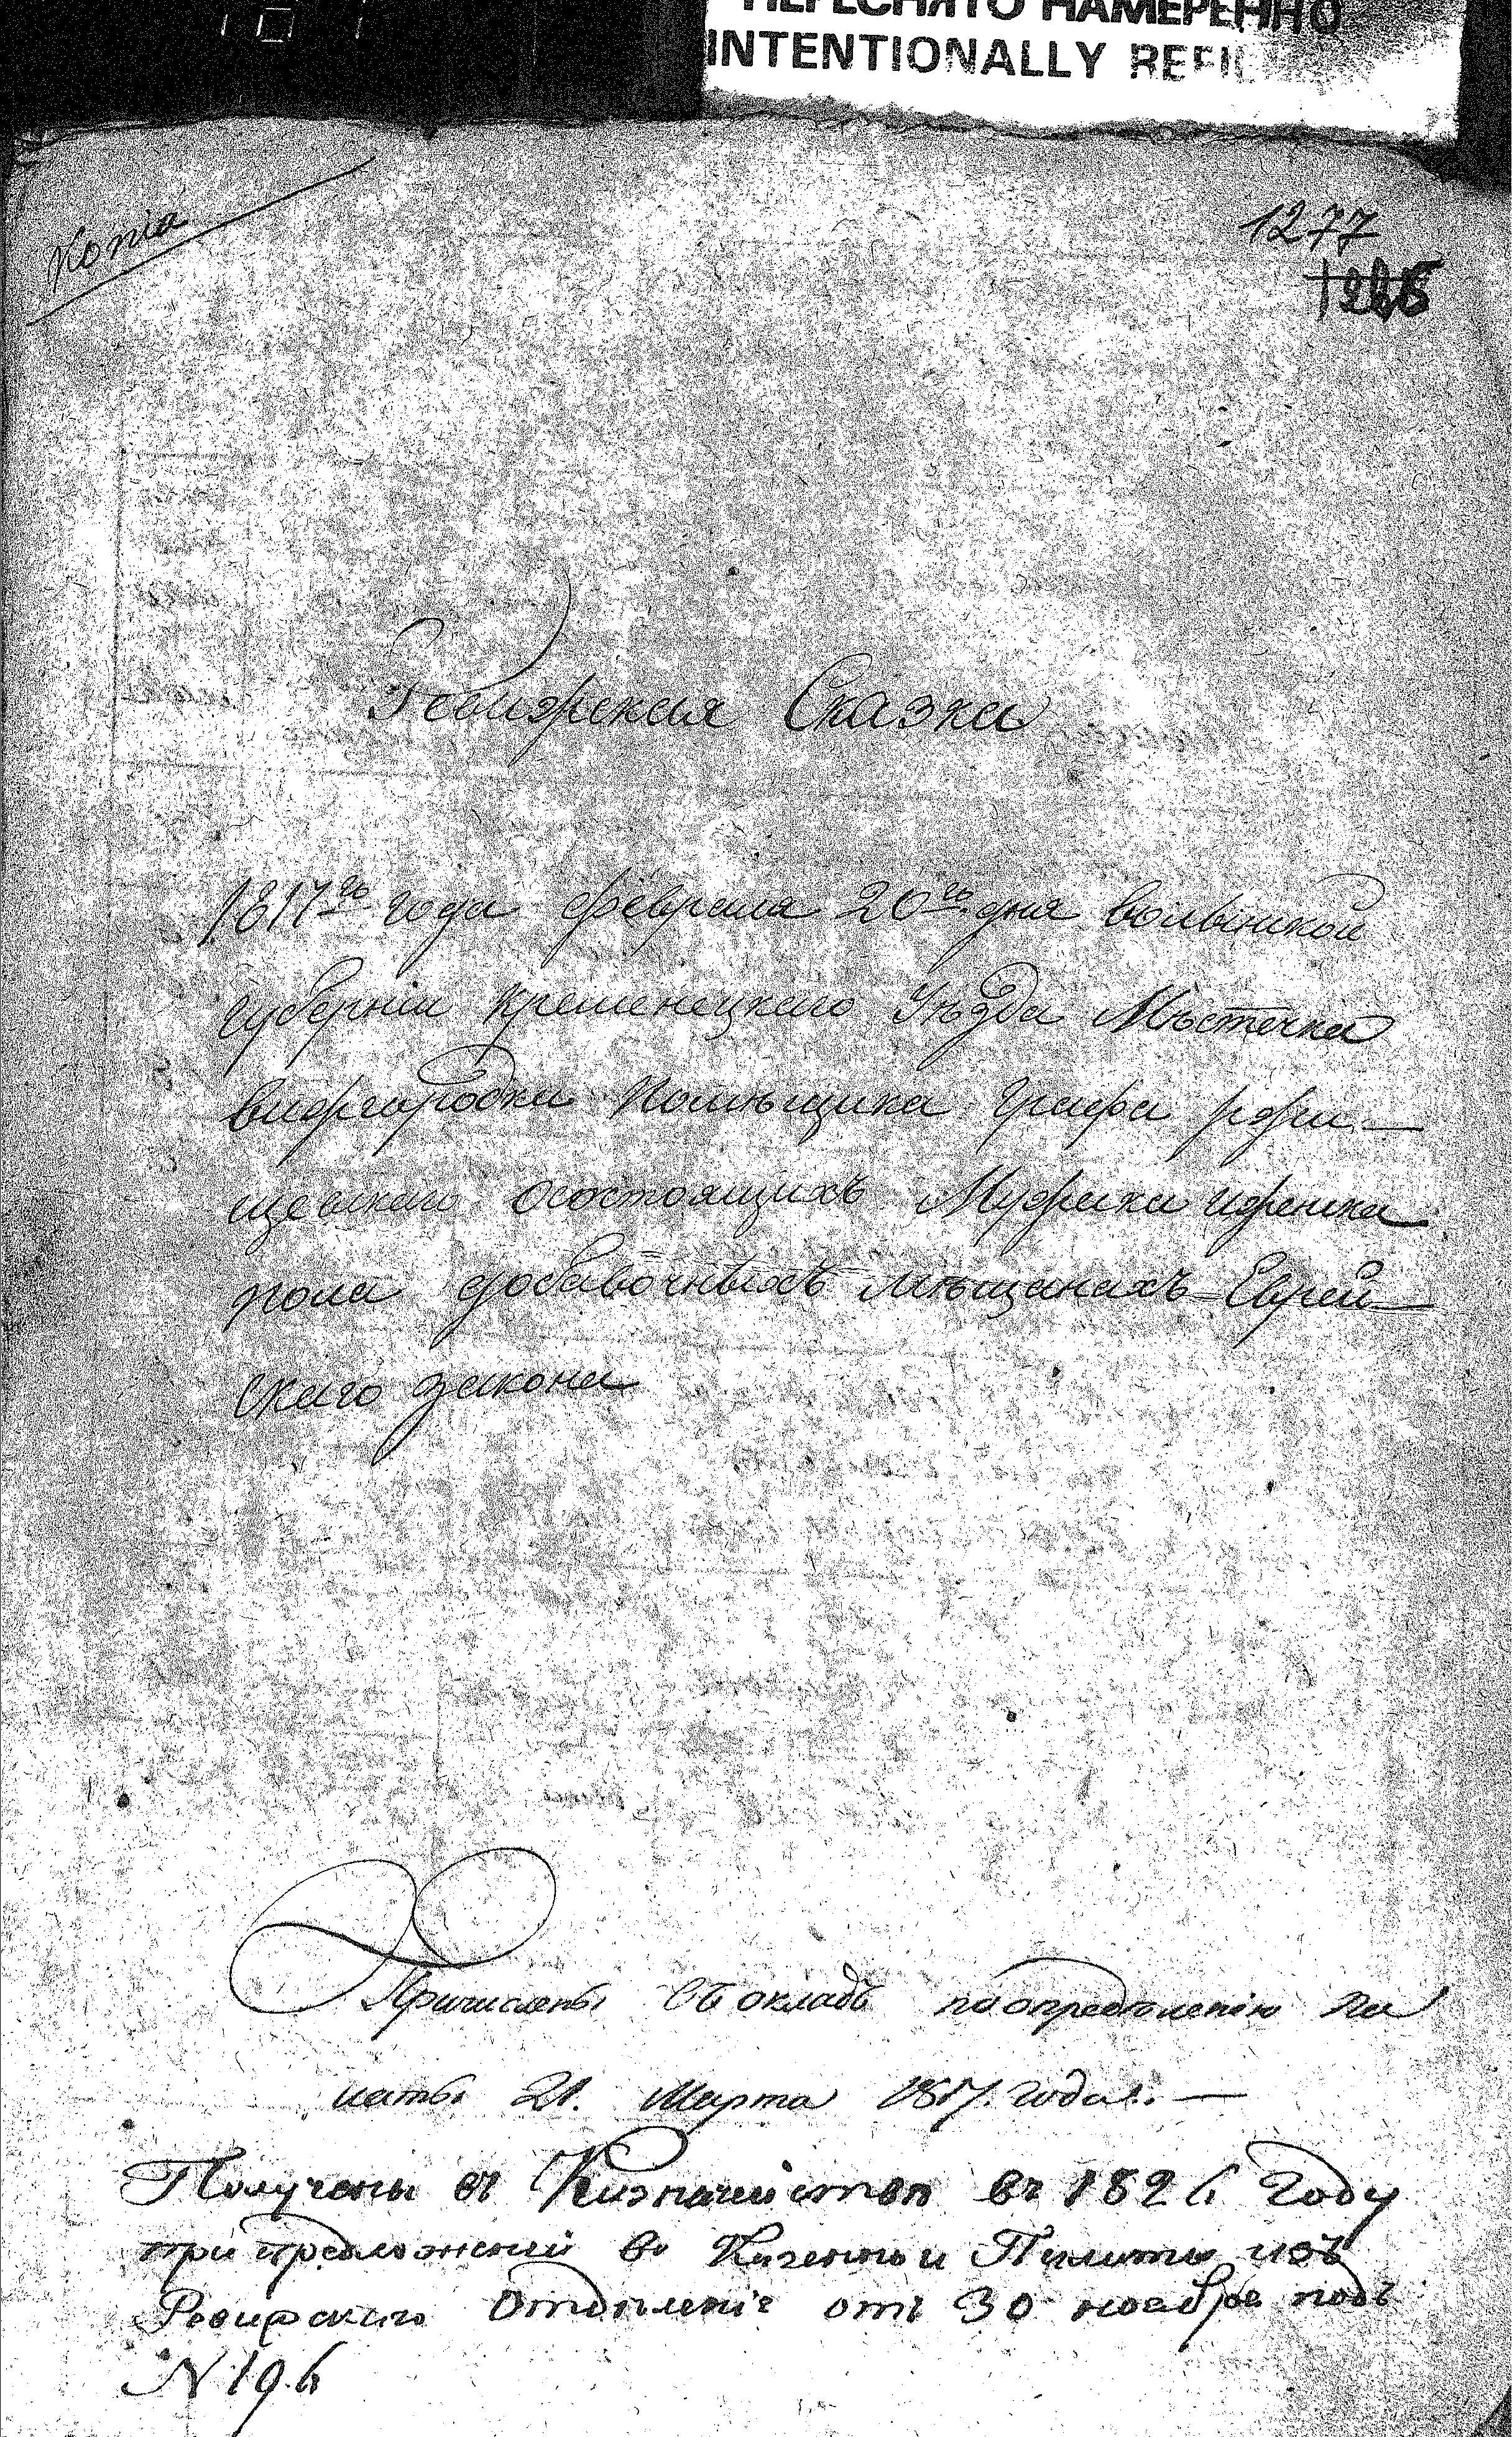 ПЕРЕСНЯТО НАМЕРЕННО
INTENTIONALLY REFIL
Копіа
1277
Ревижская Сказка
1817го года февраля 20го дня волынской
губерніи кременецкаго Уѣзда Мѣстечка
вижгородка помѣщика Графа ржи—
щевскаго осостоящихъ Мужска иженска
пола добавочныхъ мѣщанахъ Еврей—
скаго закона
Причислены въ окладъ поопредѣленію па
латы 21. марта 1817. года. —
Получены въ Казначействѣ въ 1826 Году
при предложеніи Казенной Палаты изъ
Ревижскаго Отдѣленіе отъ 30 ноября подъ
N 196